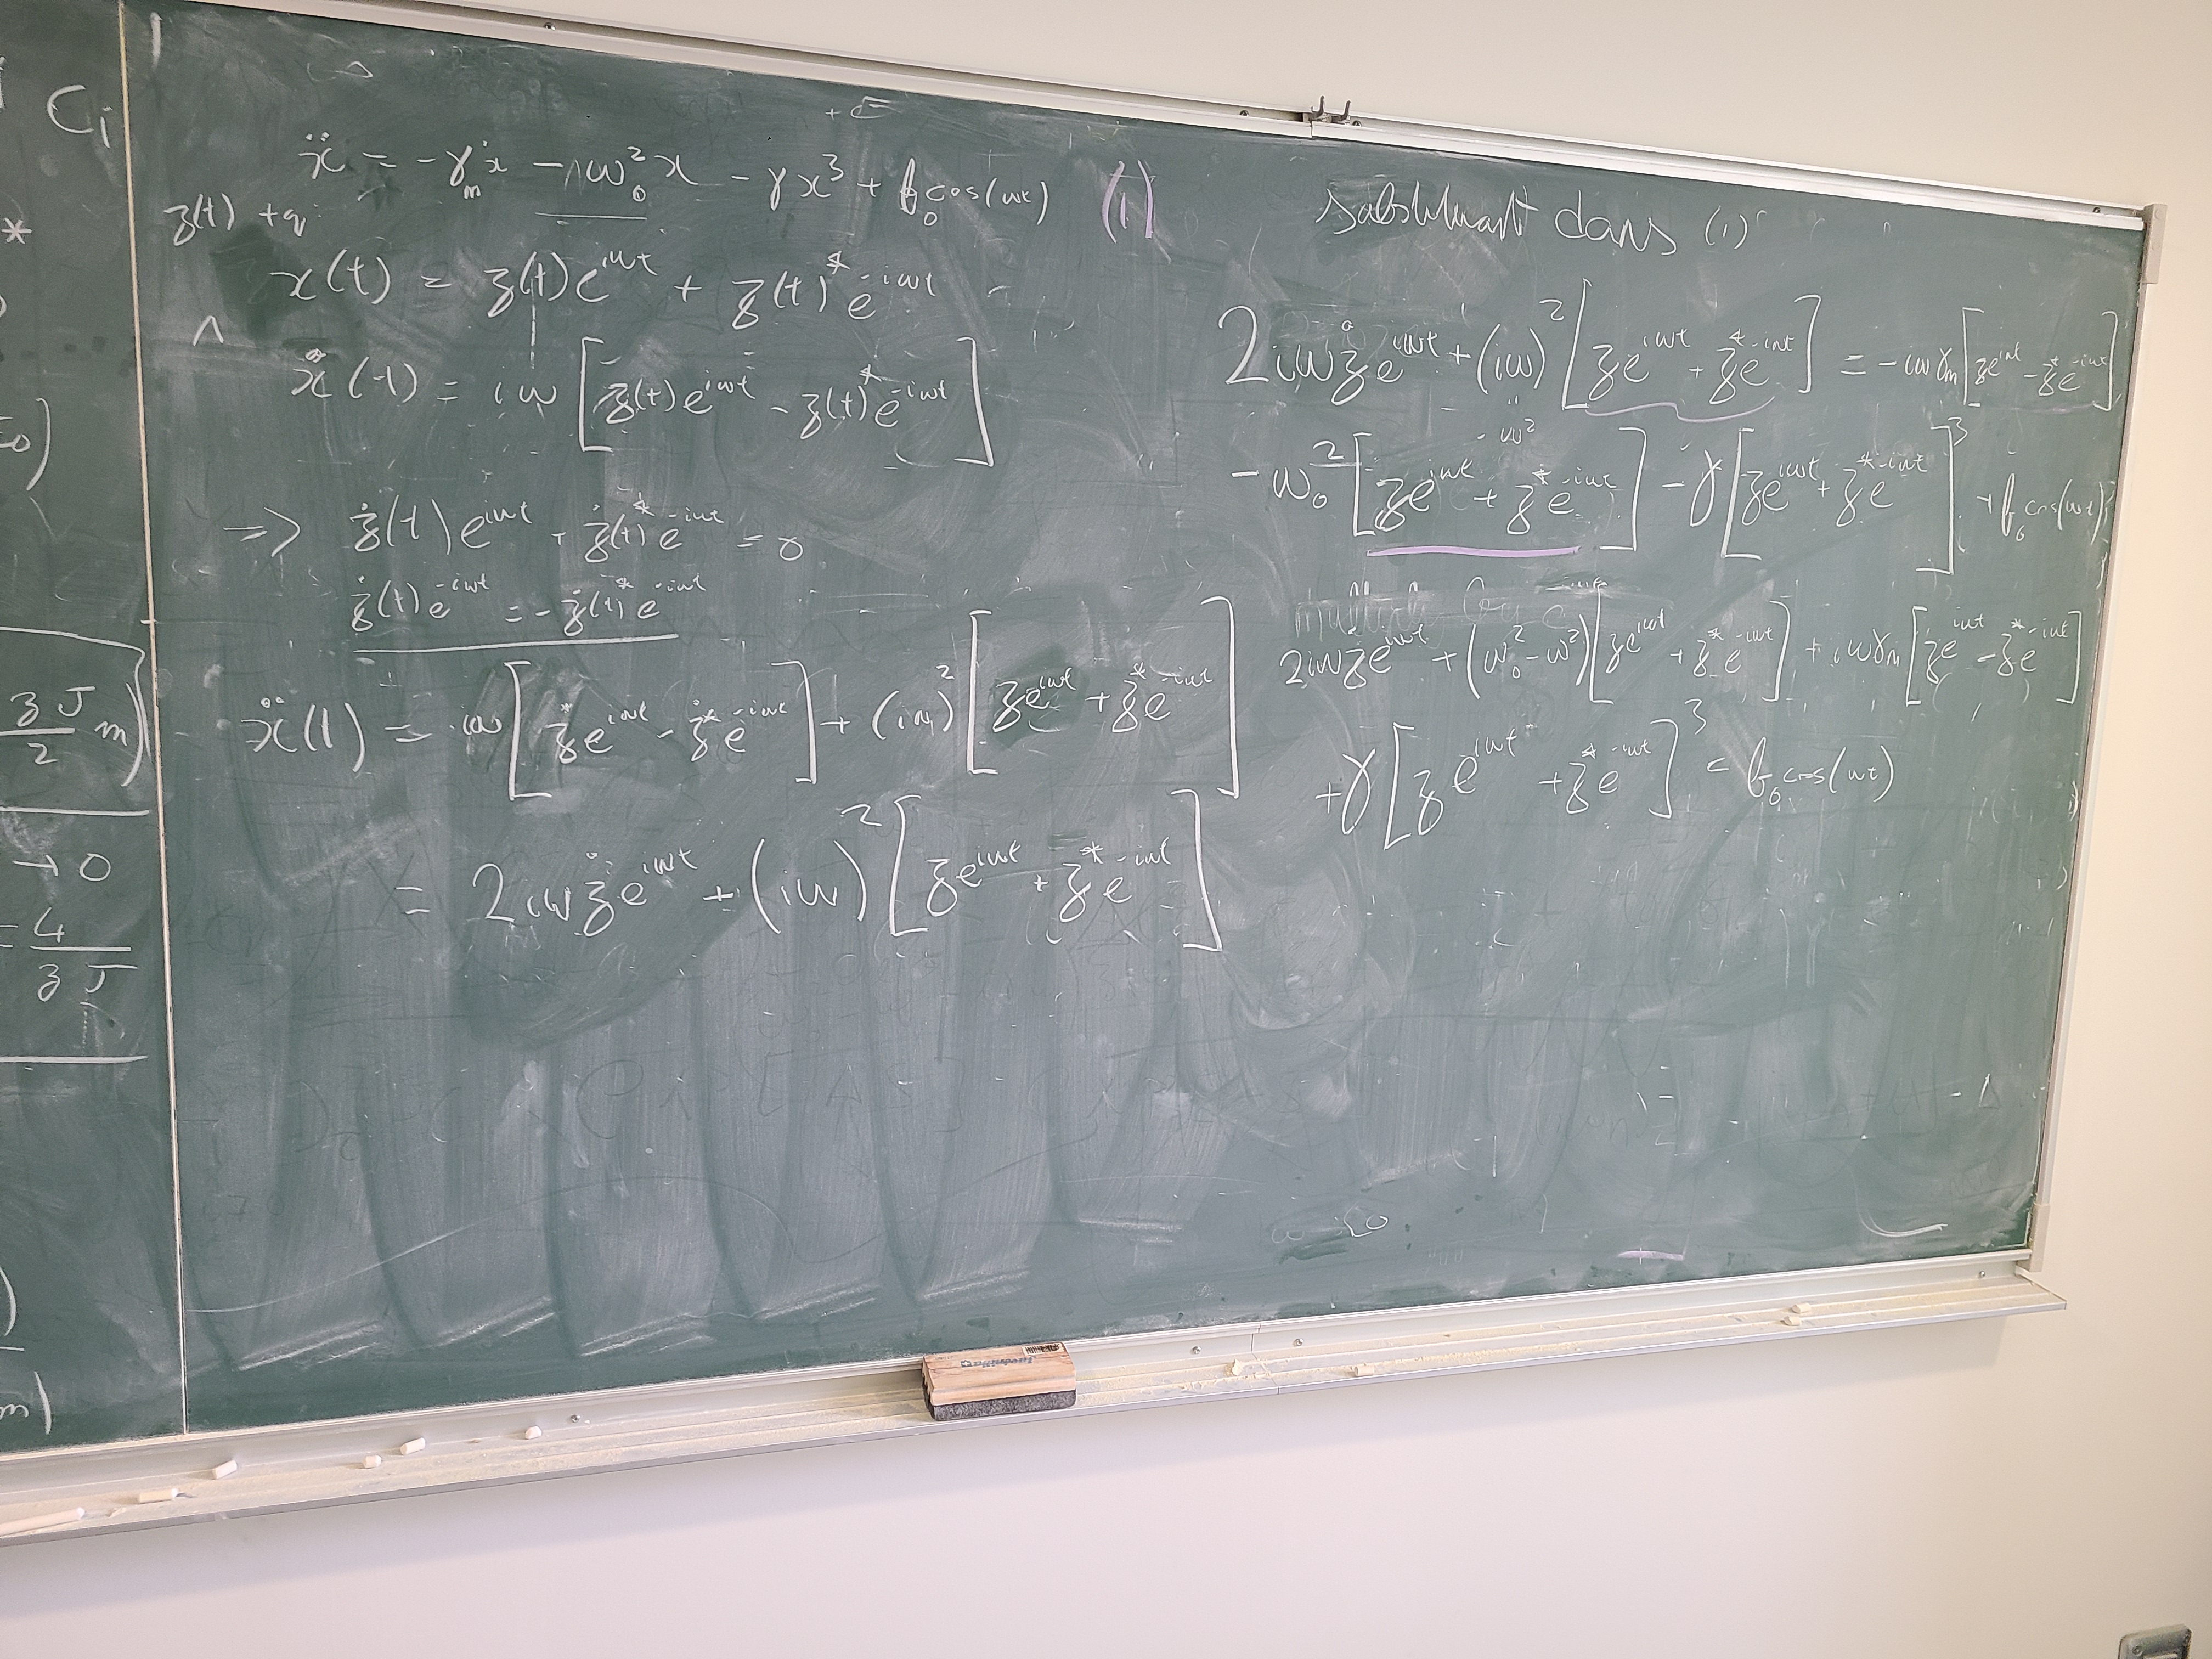 Ci
*
3J/2 m)
→ 0
= 4/3J
m)
ẍ = -γ_m ẋ - ω₀² x - γx³ + f₀ cos(ωt) (1)
z(t) + q
x(t) = z(t)e^{iωt} + z(t)* e^{-iωt}
ẋ(t) = iω [z(t)e^{iωt} - z(t)* e^{-iωt}]
=> ż(t)e^{iωt} + ż(t)* e^{-iωt} = 0
ż(t)e^{-iωt} = -ż(t)* e^{-iωt}
ẍ(t) = iω [że^{iωt} - ż* e^{-iωt}] + (iω)² [ze^{iωt} + z* e^{-iωt}]
= 2iωże^{iωt} + (iω)² [ze^{iωt} + z* e^{-iωt}]
substituant dans (1)
2iωże^{iωt} + (iω)² [ze^{iωt} + z* e^{-iωt}] = -iωγ_m [ze^{iωt} - z* e^{-iωt}]
-ω²
-ω₀² [ze^{iωt} + z* e^{-iωt}] - γ [ze^{iωt} + z* e^{-iωt}]³ + f₀ cos(ωt)
2iωże^{iωt} + (ω₀² - ω²) [ze^{iωt} + z* e^{-iωt}] + iωγ_m [ze^{iωt} - z* e^{-iωt}]
+ γ [ze^{iωt} + z* e^{-iωt}]³ = f₀ cos(ωt)